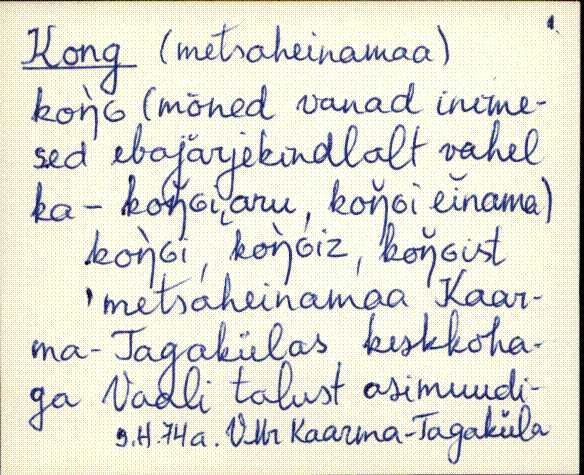 1
Kong (metsaheinamaa)
koŋ̀G (mõned vanad inime-
sed ebajärjekindlalt vahel
ka - koŋ̆Gi͔aru, koŋ̆Gi eĭnama)
koŋ̀Gi, koŋ̀Giz, koŋ̆Gist
'metsaheinamaa Kaar-
ma-Tagakülas keskkoha-
ga Vaali talust asimuudi-
9.II.74a. V.Mr Kaarma-Tagaküla